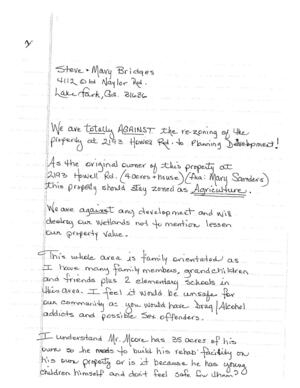 Steve + Mary Bridges
4112 Old Naylor Rd.
Lake Park, Ga. 31636
We are totally AGAINST the re-zoning of the
property at 2193 Howell Rd. to Planning Development!
As the original owner of this property at
2193 Howell Rd. (4 acres + house) (fka: Mary Sanders)
this property should stay zoned as Agriculture.
We are against any development and will
destroy our wetlands not to mention lessen
our property value.
This whole area is family orientated as
I have many family members, grandchildren
and friends plus 2 elementary schools in
this area. I feel it would be unsafe for
our community as you would have Drug/Alcohol
addicts and possible Sex offenders.
I understand Mr. Moore has 35 acres of his
own so he needs to build his rehab facility on
his own property or is it because he has young
children himself and don't feel safe for them?